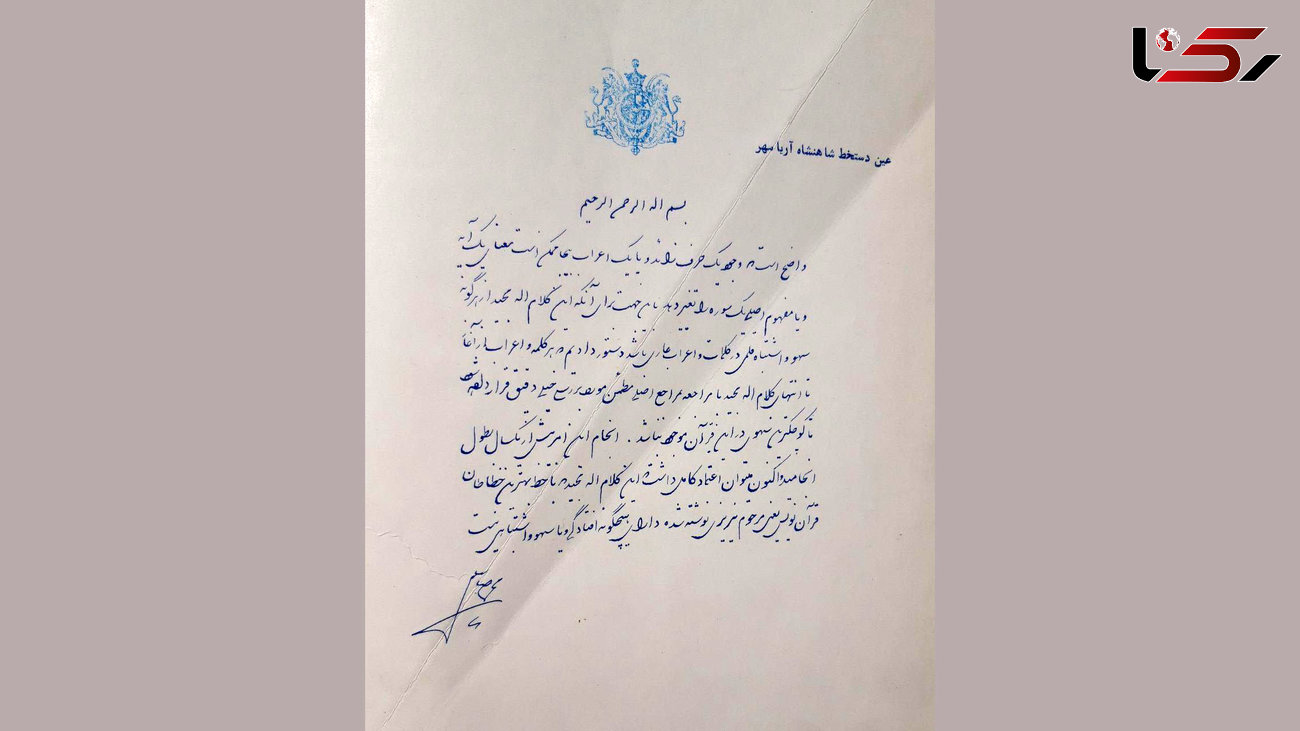 رکنا
عین دستخط شاهنشاه آریا مهر
بسم اله الرحمن الرحیم
واضح است که وجود یک حرف زائد و یا یک اعراب بیجا ممکن است معنای یک آیه
و یا مفهوم اصلی یک سوره را تغییر دهد باین جهت برای آنکه این کلام اله مجید از هر گونه
سهو و اشتباه قلمی در کلمات و اعراب عاری باشد دستور دادیم که هر کلمه و اعراب از آغاز
تا انتهای کلام اله مجید با مراجعه بمراجع اصلی مطمئن مورد بررسی خیلی دقیق قرار داده شود
تا کوچکترین سهوی در این قرآن موجود نباشد . انجام این امر بیش از یکسال بطول
انجامید و اکنون میتوان اعتماد کامل داشت که این کلام اله مجید که با خط بهترین خطاطان
قرآن نویس یعنی مرحوم نیریزی نوشته شده دارای هیچگونه افتادگی و یا سهو و اشتباهی نیست